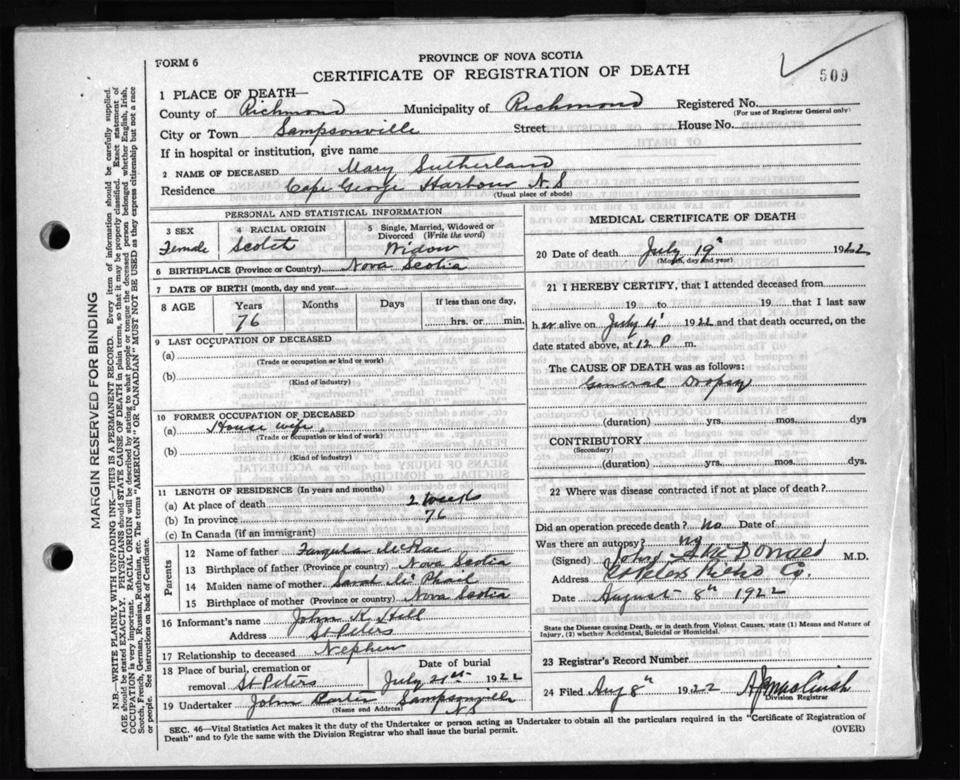 FORM 6
PROVINCE OF NOVA SCOTIA
CERTIFICATE OF REGISTRATION OF DEATH
509
1 PLACE OF DEATH—
County of Richmond Municipality of Richmond Registered No.
(For use of Registrar General only)
City or Town Sampsonville Street House No.
If in hospital or institution, give name
2 NAME OF DECEASED Mary Sutherland
Residence Cape George Harbour N.S
(Usual place of abode)
PERSONAL AND STATISTICAL INFORMATION
3 SEX 4 RACIAL ORIGIN 5 Single, Married, Widowed or Divorced (Write the word)
Female Scotch Widow
6 BIRTHPLACE (Province or Country) Nova Scotia
7 DATE OF BIRTH (month, day and year)
8 AGE Years Months Days If less than one day,
76 hrs. or min.
9 LAST OCCUPATION OF DECEASED
(a)
(Trade or occupation or kind of work)
(b)
(Kind of industry)
10 FORMER OCCUPATION OF DECEASED
(a) House wife
(Trade or occupation or kind of work)
(b)
(Kind of industry)
11 LENGTH OF RESIDENCE (In years and months)
(a) At place of death 2 weeks
(b) In province 76
(c) In Canada (if an immigrant)
Parents
12 Name of father Farquhar McRae
13 Birthplace of father (Province or country) Nova Scotia
14 Maiden name of mother Sarah McPhail
15 Birthplace of mother (Province or country) Nova Scotia
16 Informant's name John K. Hill
Address St Peters
17 Relationship to deceased Nephew
18 Place of burial, cremation or removal St Peters Date of burial July 21st 1922
19 Undertaker John Carter Sampsonville NS
(Name and Address)
MEDICAL CERTIFICATE OF DEATH
20 Date of death July 19th 1922
(Month, day and year)
21 I HEREBY CERTIFY, that I attended deceased from
19 to 19 that I last saw
her alive on July 4th 1922 and that death occurred, on the
date stated above, at 12 P m.
The CAUSE OF DEATH was as follows:
General Dropsy
(duration) yrs. mos. dys
CONTRIBUTORY
(Secondary)
(duration) yrs. mos. dys.
22 Where was disease contracted if not at place of death?
Did an operation precede death? No Date of
Was there an autopsy? No
(Signed) John McDonald M.D.
Address St Peters Richd Co.
Date August 8th 1922
State the Disease causing Death, or in death from Violent Causes, state (1) Means and Nature of
Injury, (2) whether Accidental, Suicidal or Homicidal.
23 Registrar's Record Number
24 Filed Aug 8th 1922
Division Registrar
SEC. 46—Vital Statistics Act makes it the duty of the Undertaker or person acting as Undertaker to obtain all the particulars required in the "Certificate of Registration of
Death" and to fyle the same with the Division Registrar who shall issue the burial permit.
(OVER)
MARGIN RESERVED FOR BINDING
N.B.—WRITE PLAINLY WITH UNFADING INK—THIS IS A PERMANENT RECORD. Every item of information should be carefully supplied.
AGE should be stated EXACTLY. PHYSICIANS should STATE CAUSE OF DEATH in plain terms, so that it may be properly classified. Exact statement of
OCCUPATION is very important. RACIAL ORIGIN will be described by stating to what people or tongue the deceased person belonged, whether English, Irish,
Scotch, French, German, Russian, Ruthenian, etc. The terms "AMERICAN" OR "CANADIAN" MUST NOT BE USED as they express citizenship but not a race
or people. See instructions on back of Certificate.